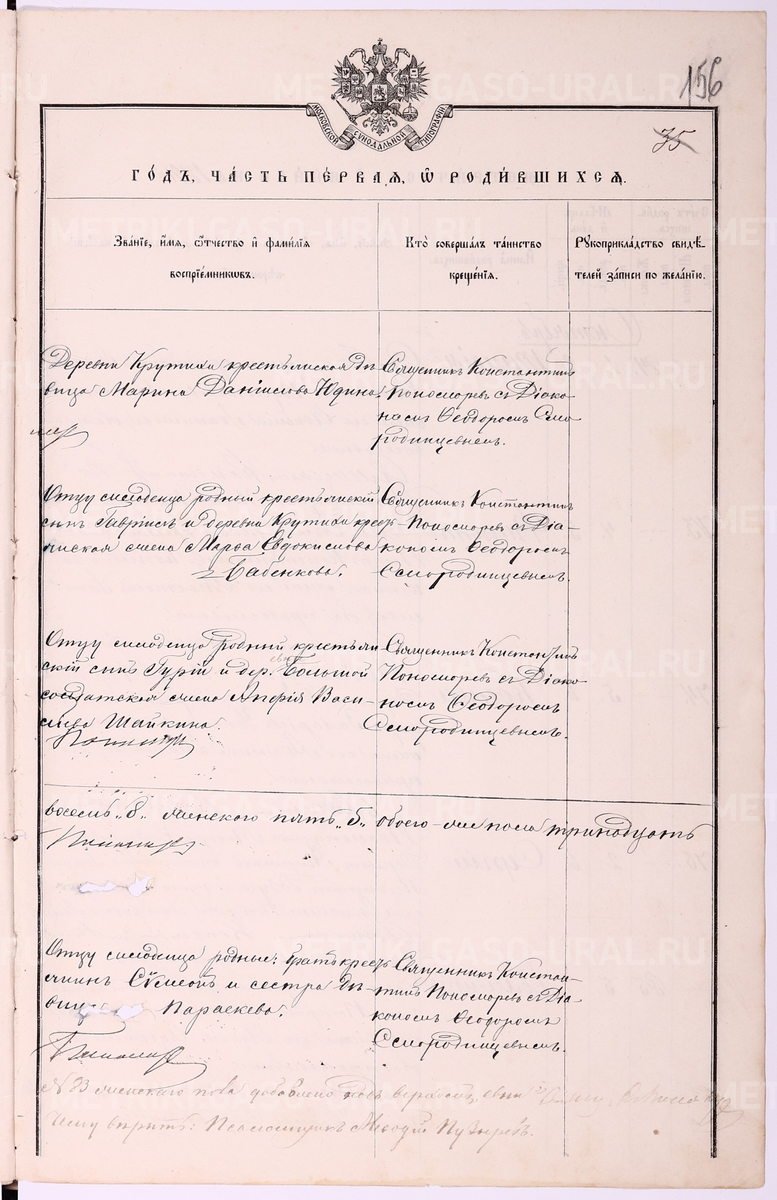 156
35
МОСКОВСКОЙ СУНОДАЛЬНОЙ ТИПОГРАФІИ
ГО́ДЪ, ЧА́СТЬ ПЕ́РВАЯ, Ѿ РОДИ́ВШИХСЯ.
Зва́нїе, и҆́мя, ѻ҆́тчество и҆ фами́лїя
воспрїе́мникѡвъ.
Кто̀ соверша́лъ та́инство
креще́нїя.
Рꙋкоприкла́дство свидѣ́-
телей за́писи по жела́нїю.
Деревни Крутихи крестьянская дѣ-
вица Марина Даніилова Юдина
Священникъ Константинъ
Пономаревъ съ Діако-
номъ Ѳеодоромъ Смо-
родинцевымъ.
Отцу младенца родный крестьянскій
сынъ Гавріилъ и деревни Крутихи крест-
янская жена Марѳа Евдокимова
Бабенкова.
Священникъ Константинъ
Пономаревъ съ Діа-
кономъ Ѳеодоромъ
Смородинцевымъ.
Отцу младенца родный крестьян-
скій сынъ Гурій и дер. Большой
солдатская жена Анфія Васи-
льева Шайкина.
Священникъ Константинъ
Пономаревъ съ Діако-
номъ Ѳеодоромъ
Смородинцевымъ.
восемь „8„ женскаго пять „5„ обоего-же пола тринадцать
Отцу младенца родные: братъ крест-
янинъ Сѵмеонъ и сестра дѣ-
вица Параскева.
Священникъ Констан-
тинъ Пономаревъ съ Діа-
кономъ Ѳеодоромъ
Смородинцевымъ.
№ 23 женскаго пола добавлено
Чему вѣрить: Псаломщикъ Меѳодій Пузыревъ.